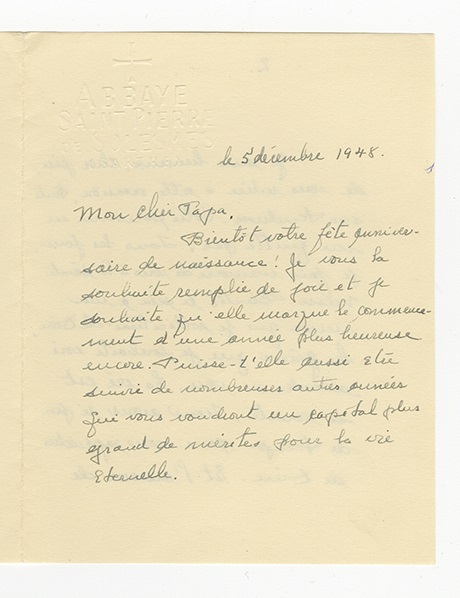 ABBAYE
SAINT PIERRE
DE SOLESMES
le 5 décembre 1948.
Mon cher Papa,
Bientôt votre fête anniver-
saire de naissance! Je vous la
souhaite remplie de joie et je
souhaite qu'elle marque le commence-
ment d'une année plus heureuse
encore. Puisse-t'elle aussi etre
suivie de nombreuses autres années
qui vous vaudront un capital plus
grand de mérites pour la vie
Eternelle.